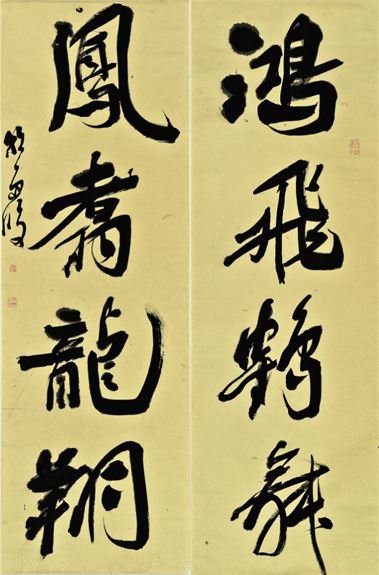 鴻飛鶴舞
鳳翥龍翔